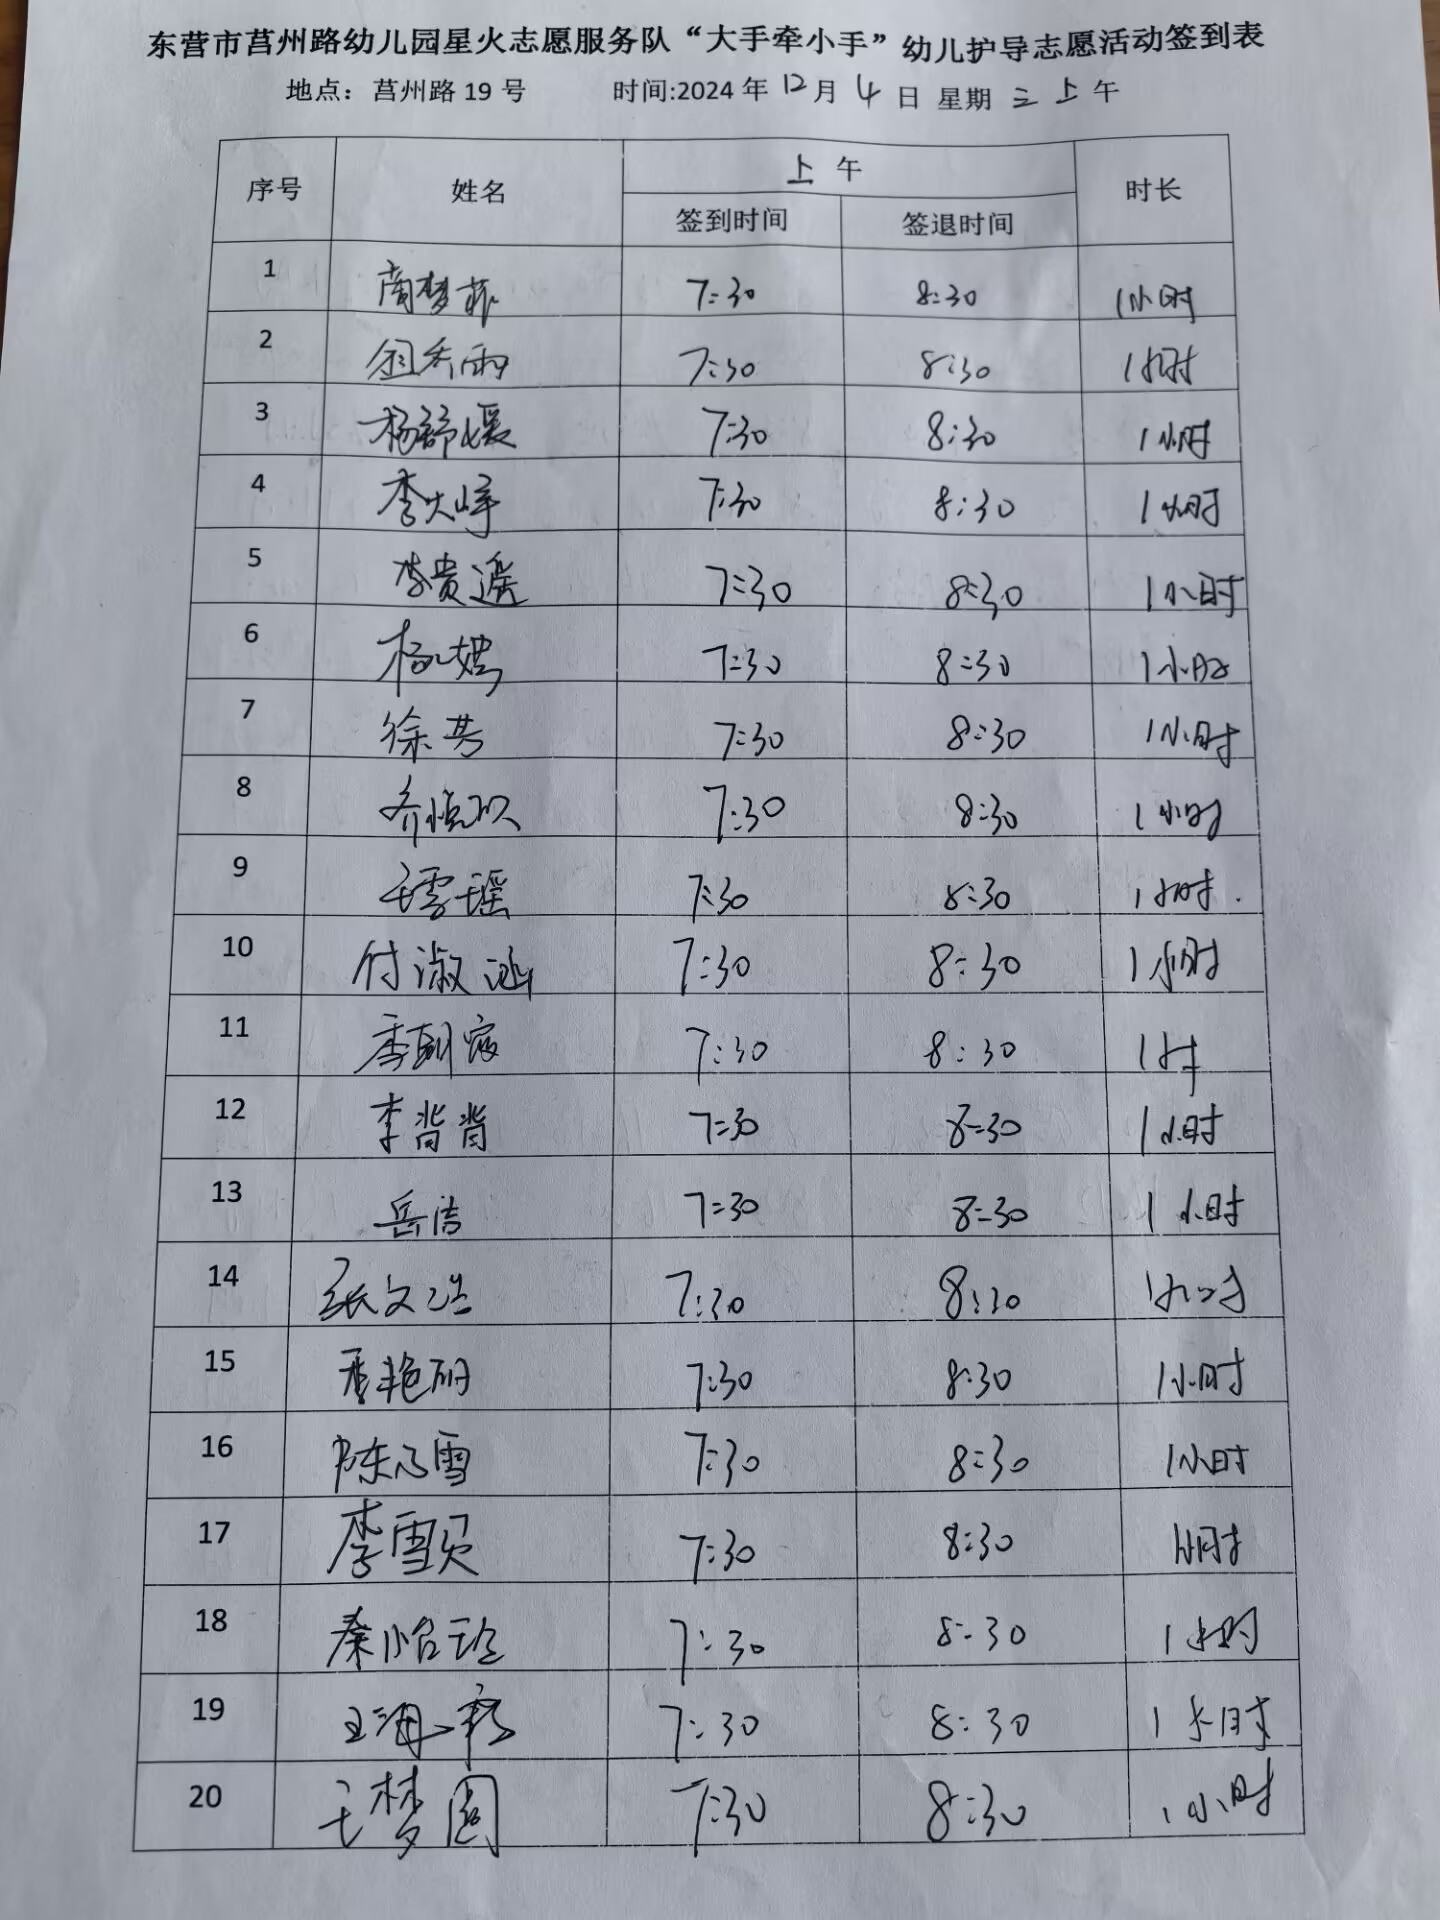 东营市莒州路幼儿园星火志愿服务队“大手牵小手”幼儿护导志愿活动签到表
地点：莒州路19号 时间:2024年12月4日 星期三上午
序号 姓名 上午 时长
签到时间 签退时间
1 7:30 8:30 1小时
2 7:30 8:30 1小时
3 杨舒媛 7:30 8:30 1小时
4 李大峰 7:30 8:30 1小时
5 李贵遥 7:30 8:30 1小时
6 杨嫣 7:30 8:30 1小时
7 徐芳 7:30 8:30 1小时
8 7:30 8:30 1小时
9 王雪瑶 7:30 8:30 1小时
10 付淑涵 7:30 8:30 1小时
11 7:30 8:30 1小时
12 李背背 7:30 8:30 1小时
13 岳洁 7:30 8:30 1小时
14 张文洁 7:30 8:30 1小时
15 7:30 8:30 1小时
16 陈乃雪 7:30 8:30 1小时
17 李雪贝 7:30 8:30 1小时
18 秦怡玲 7:30 8:30 1小时
19 7:30 8:30 1小时
20 王梦圆 7:30 8:30 1小时